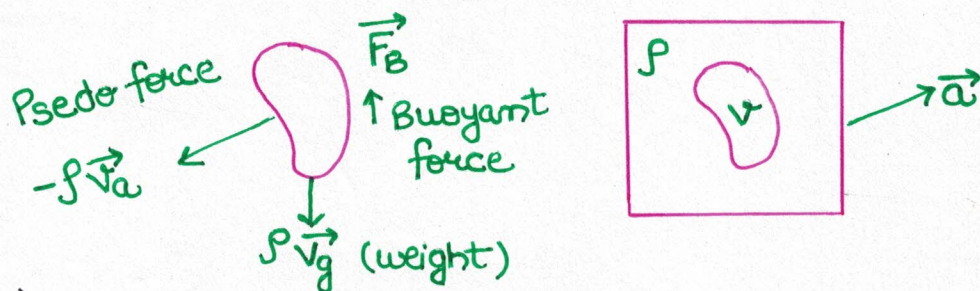 Psedo force
-ρV⃗a
F⃗B
↑ Buoyant
force
ρV⃗g (weight)
ρ
v
a⃗